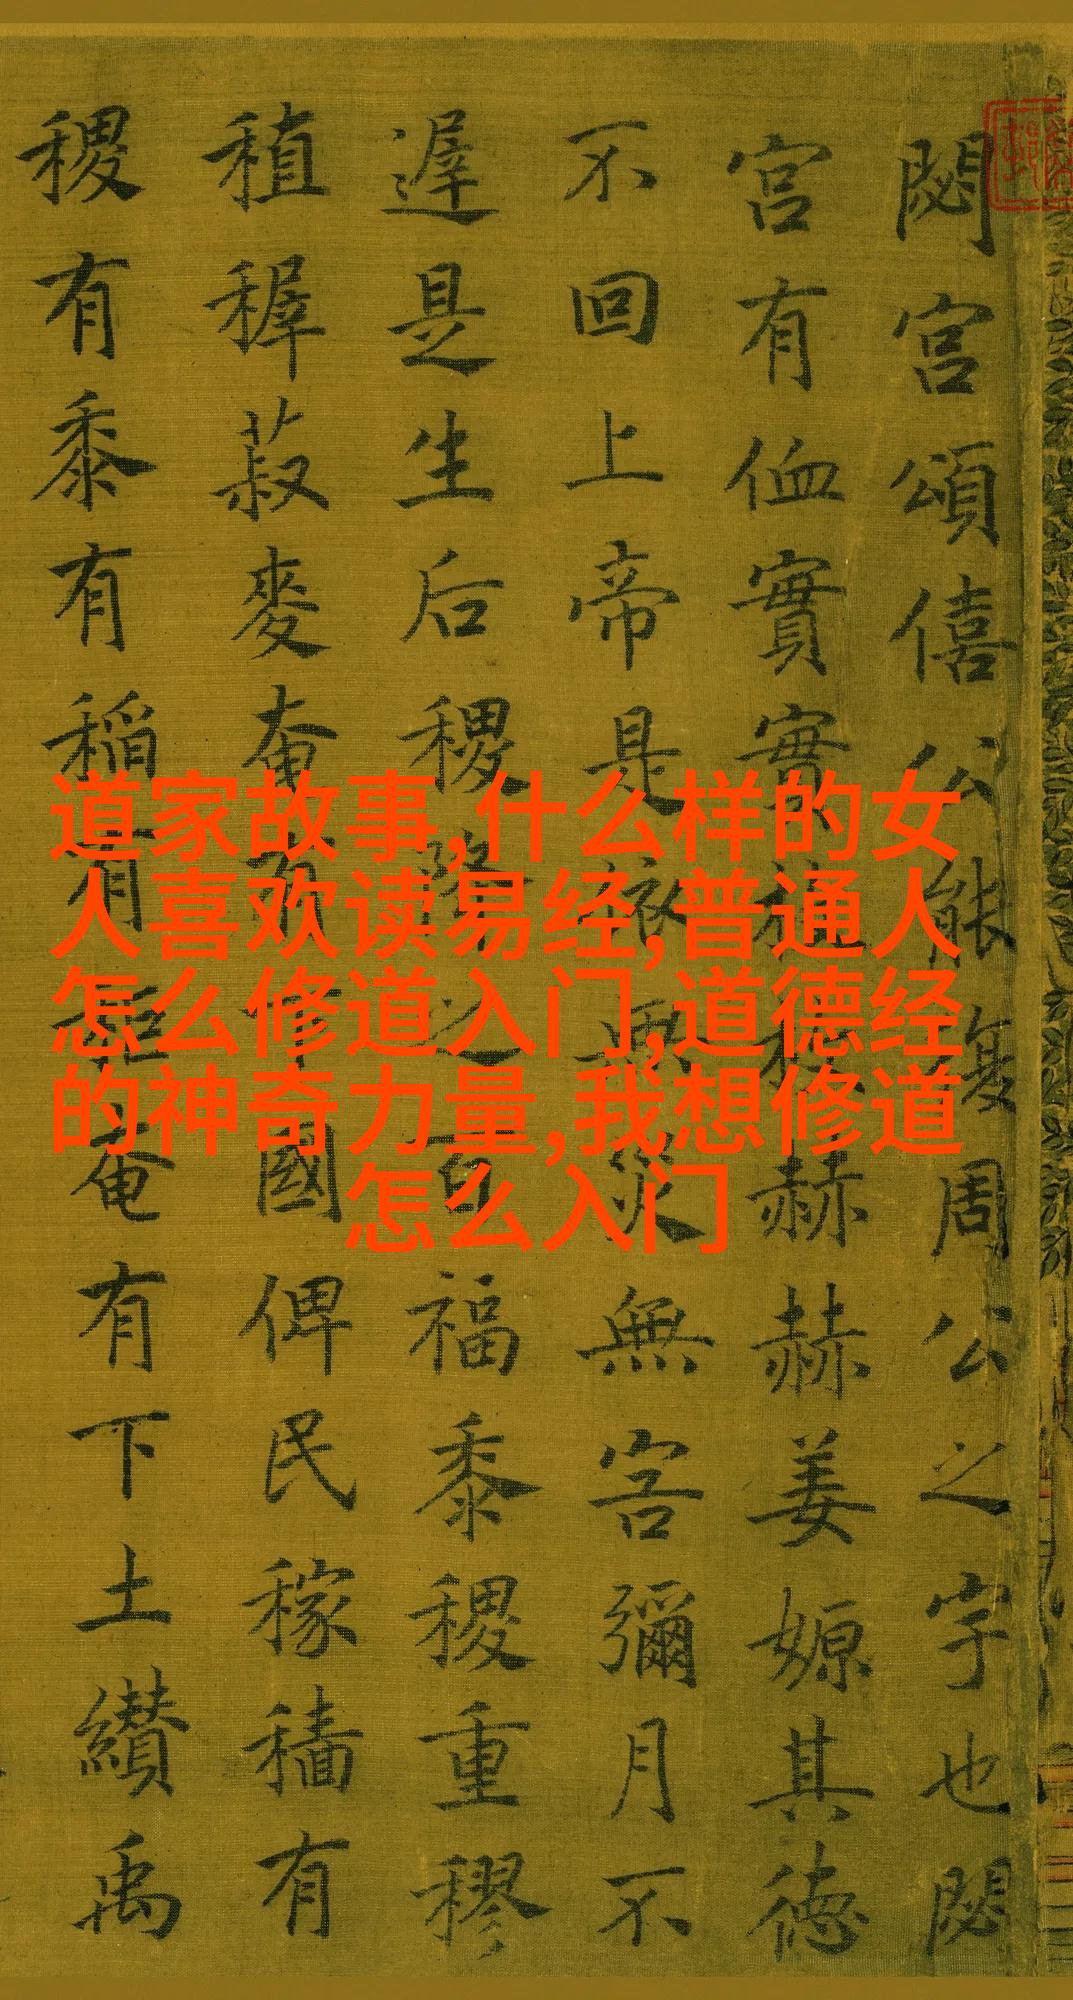 道家故事,什么样的女
人喜欢读易经,普通人
怎么修道入门,道德经
的神奇力量,我想修道
怎么入门
閟宮頌僖公能復周公之宇也閟
宮有侐實實枚枚赫赫姜嫄其德
不回上帝是依無災無害彌月不
遲是生后稷降之百福黍稷重穋
稙稺菽麥奄有下國俾民稼穡有
稷有黍有稻有秬奄有下土纘禹